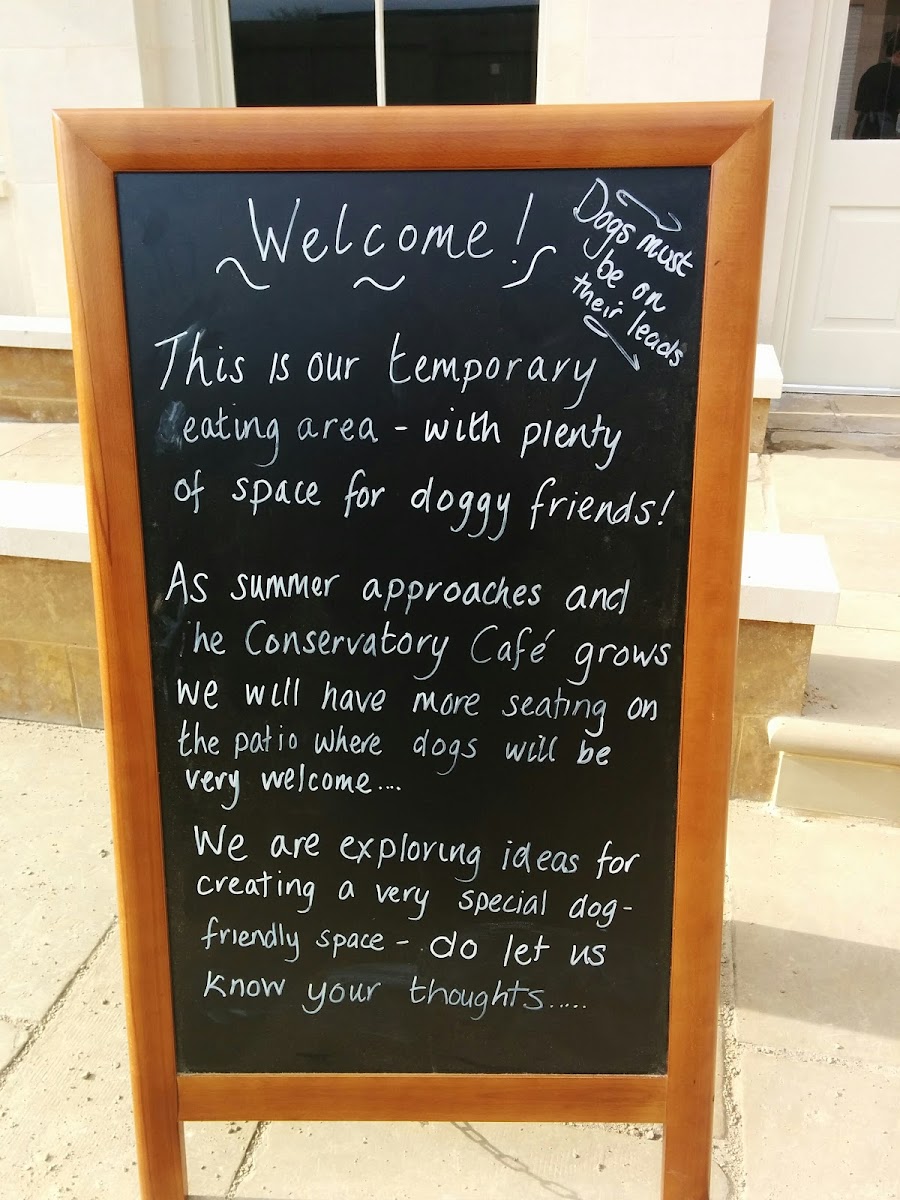 Welcome!
Dogs must
be on
their leads
This is our temporary
eating area - with plenty
of space for doggy friends!
As summer approaches and
the Conservatory Café grows
we will have more seating on
the patio where dogs will be
very welcome....
We are exploring ideas for
creating a very special dog-
friendly space - do let us
know your thoughts.....